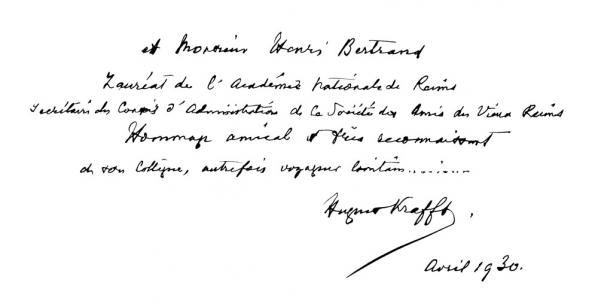 à Monsieur Henri Bertrand
Lauréat de l'Académie Nationale de Reims
Secrétaire du Conseil d'Administration de la Société des Amis du Vieux Reims
Hommage amical et très reconnaissant
de son Collègue, autrefois voyageur lointain..........
Hugues Krafft.
Avril 1930.